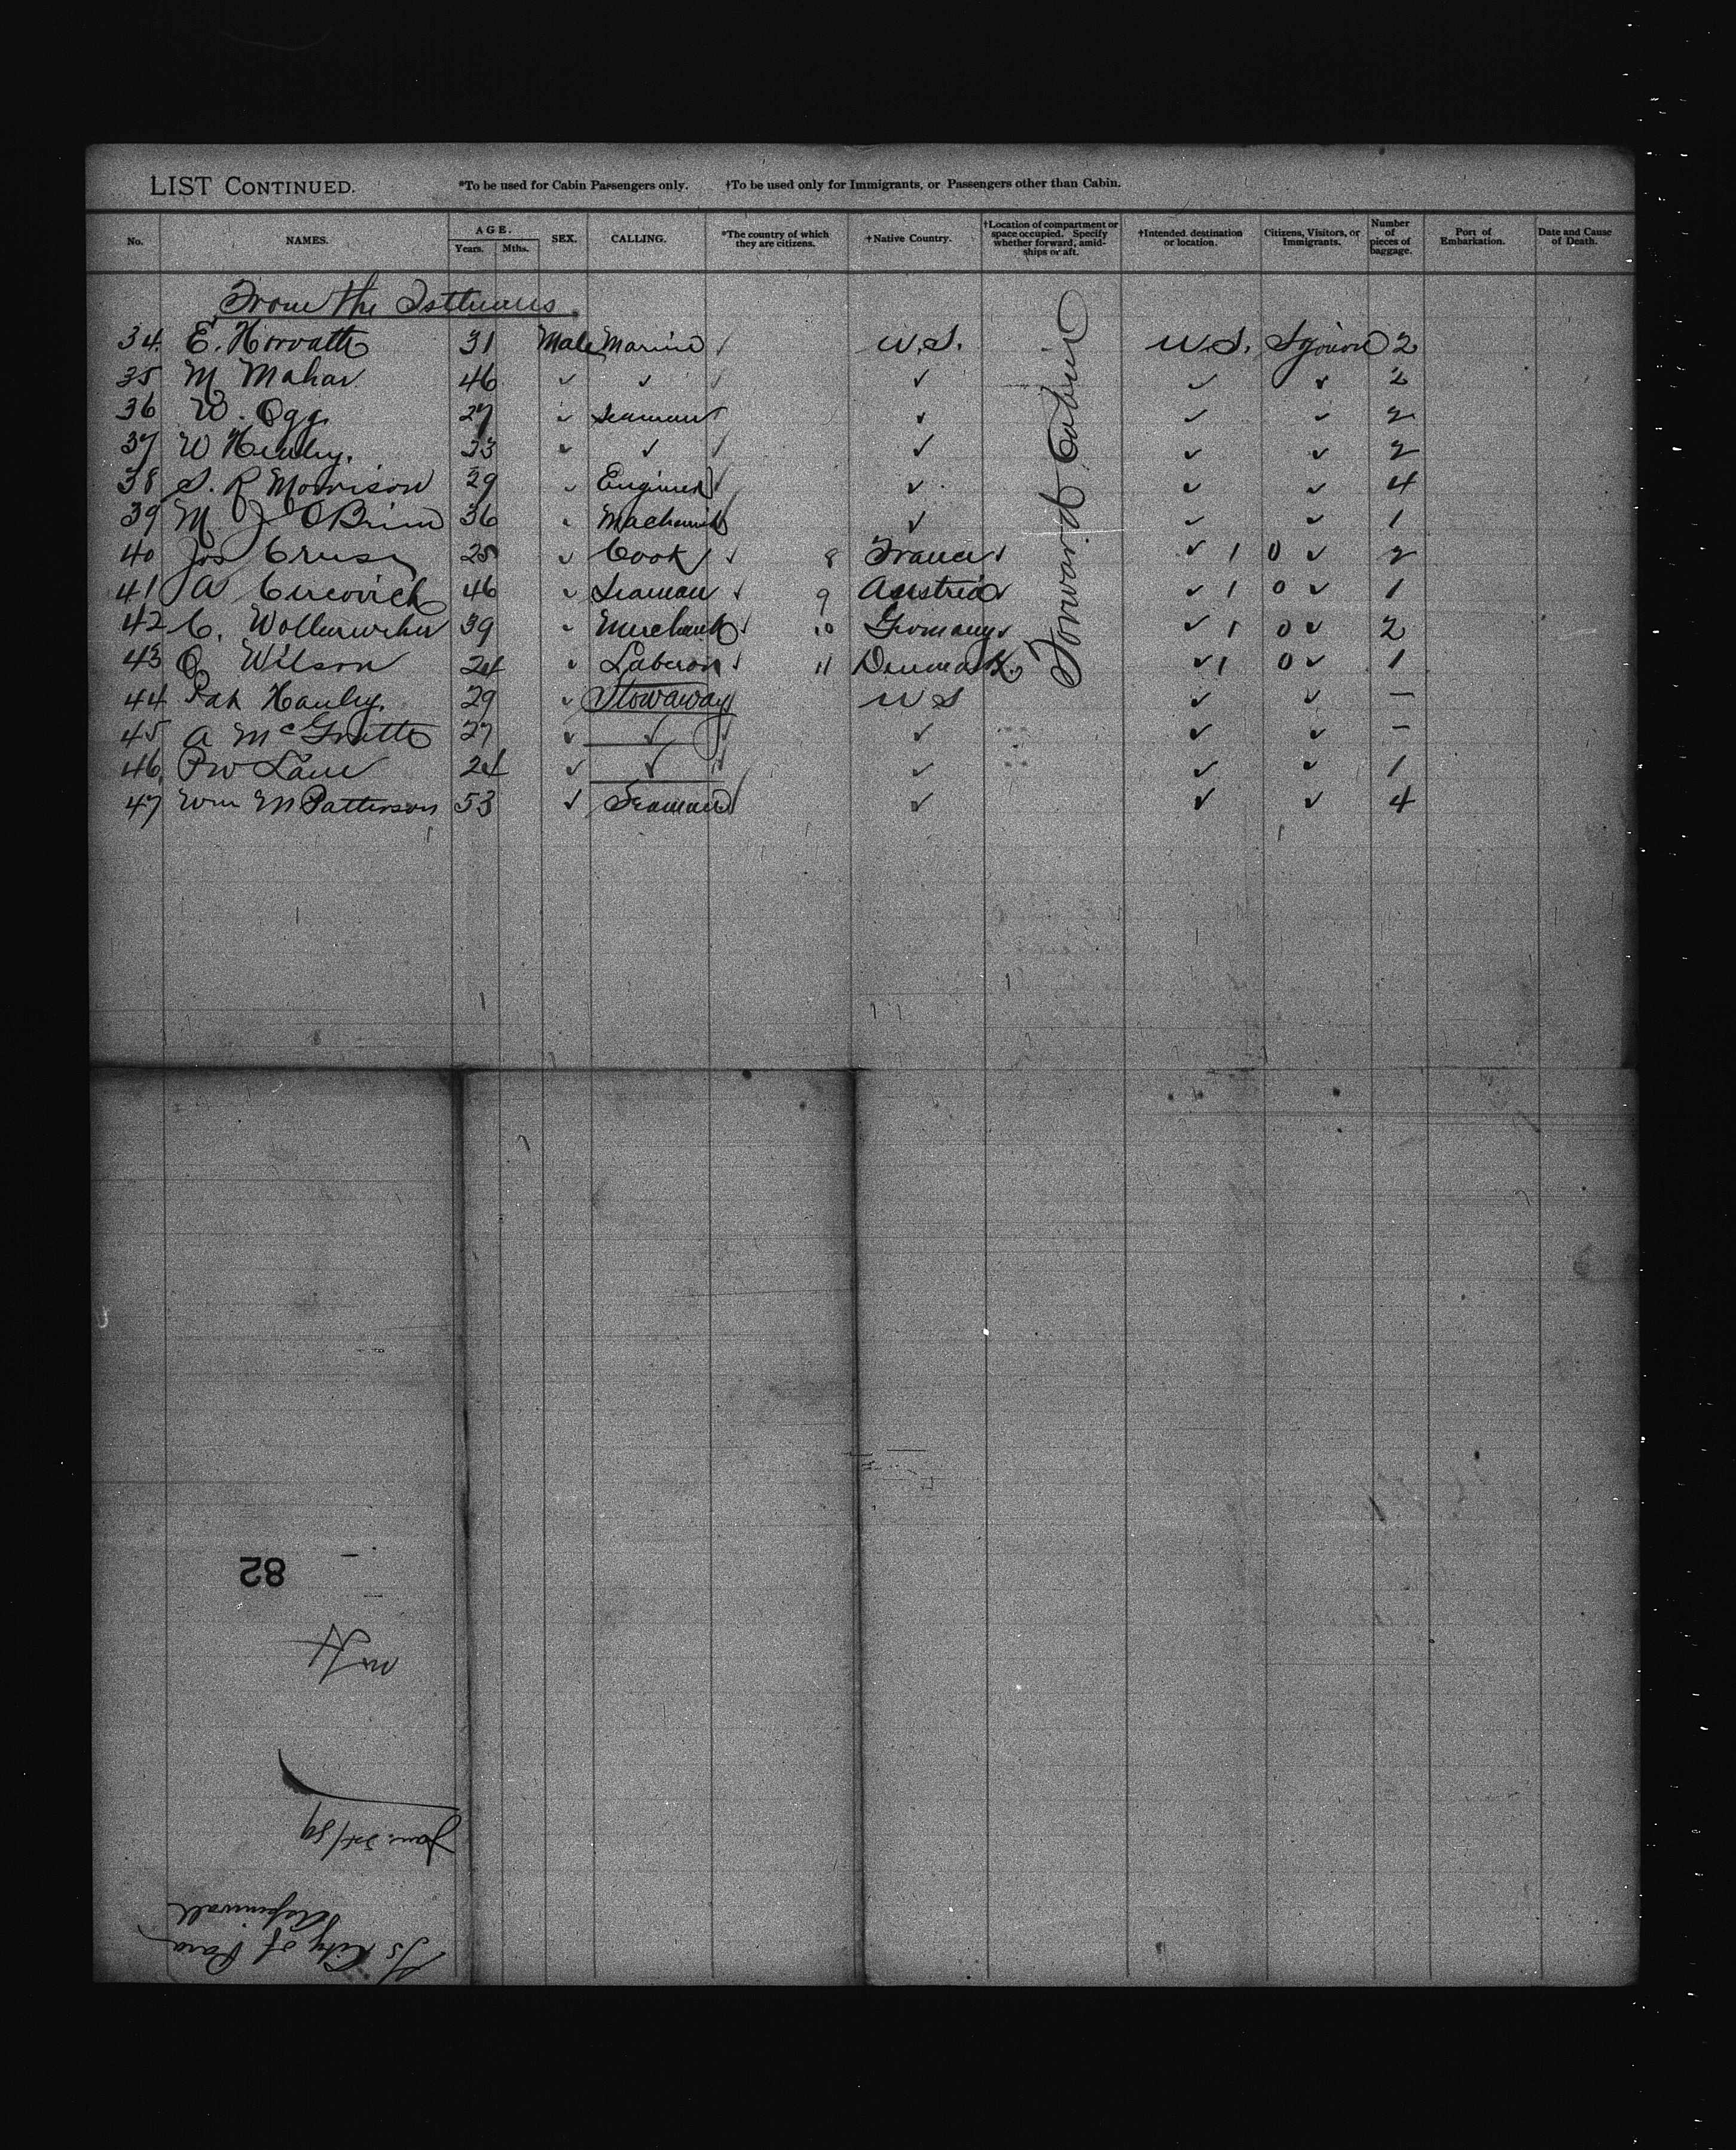 LIST CONTINUED. *To be used for Cabin Passengers only. †To be used only for Immigrants, or Passengers other than Cabin.
No. NAMES. AGE. Years. Mths. SEX. CALLING. *The country of which they are citizens. †Native Country. †Location of compartment or space occupied. Specify whether forward, amidships or aft. †Intended destination or location. Citizens, Visitors, or Immigrants. Number of pieces of baggage. Port of Embarkation. Date and Cause of Death.
From the Isthmus
34. E. Horvath 31 Male Marine ✓ U.S. U.S. Sojourn 2
35 M Mahar 46 ✓ ✓ ✓ ✓ ✓ ✓ 2
36 W. Ogg. 27 ✓ Seaman ✓ ✓ ✓ ✓ 2
37 W 33 ✓ ✓ ✓ ✓ ✓ ✓ 2
38 S. R Morrison 29 ✓ Engineer ✓ ✓ ✓ ✓ 4
39 M J OBrien 36 ✓ Machinist ✓ ✓ ✓ 1
40 Jos 25 ✓ Cook ✓ 8 France ✓ ✓ 1 0 ✓ 2
41 A Circovich 46 ✓ Seaman ✓ 9 Austria ✓ ✓ 1 0 ✓ 1
42 C. Wollenweber 39 ✓ Merchant ✓ 10 Germany ✓ ✓ 1 0 ✓ 2
43 O Wilson 24 ✓ Laborer ✓ 11 Denmark ✓ 1 0 ✓ 1
44 Pat Hanley. 29 ✓ Stowaway U S ✓ ✓ —
45 A McGrath 27 ✓ ✓ ✓ ✓ ✓ ✓ —
46. P W Lane 24 ✓ ✓ ✓ ✓ ✓ ✓ 1
47 Wm M Patterson 53 ✓ Seaman ✓ ✓ ✓ 4
Forward Cabin
Ss City of Para
Aspinwall
Jan: 3d/89
82